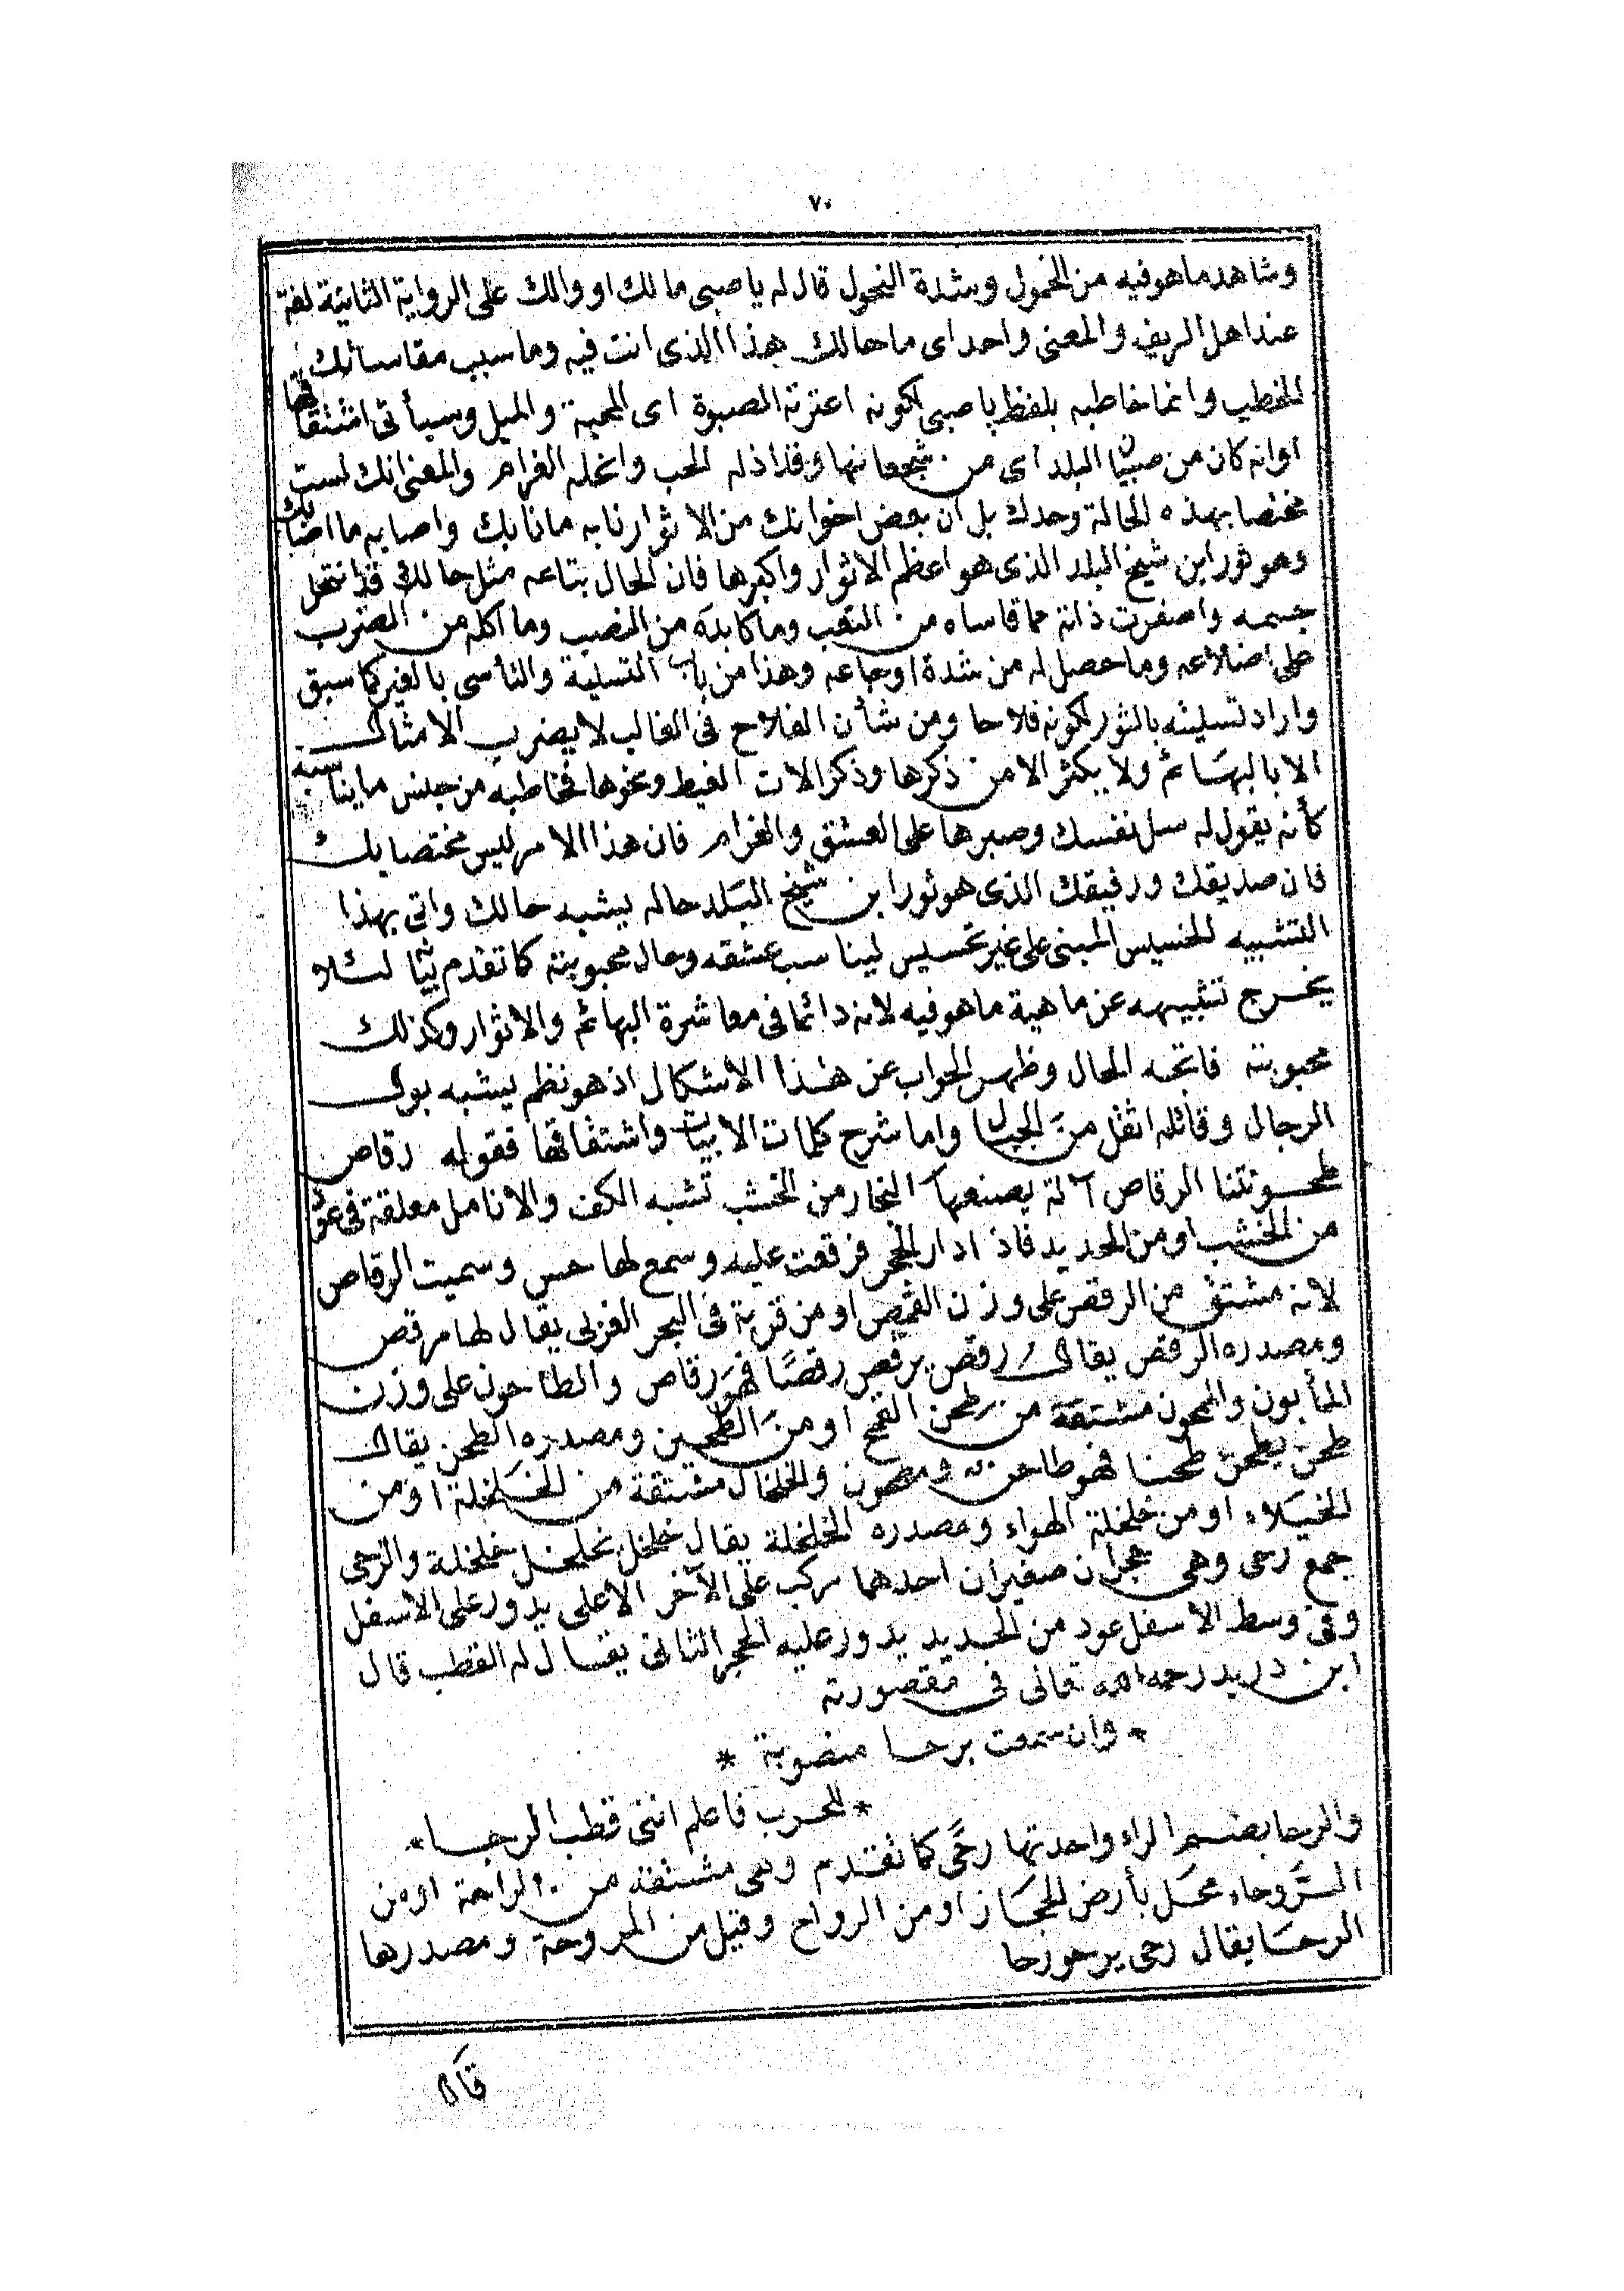 ٧٠
وشاهد ما هو فيه من الخمول وشدة النحول قال له يا صبى مالك او والك على الرواية الثانية لغة
عند اهل الريف والمعنى واحد اى ما حالك هذا الذى انت فيه وما سبب مقاساتك
للخطب وانما خاطبه بلفظ يا صبى لكونه اعترته الصبوة اى المحبة والميل وسيأتى اشتقاقها
او انه كان من صبيان البلد اى من شجعانها وقد اذله الحب وانحله الغرام والمعنى انك لست
مختصا بهذه الحالة وحدك بل ان بعض اخوانك من الاثوار نابه ما نابك واصابه ما اصابك
وهو ثور ابن شيخ البلد الذى هو اعظم الاثوار واكبرها فان الحال بتاعه مثل حالك قد انتحل
جسمه واصفرت ذاته مما قاساه من التعب وما كابده من النصب وما اكله من الضرب
على اضلاعه وما حصل له من شدة اوجاعه وهذا من باب التسلية والتأسى بالغير كما سبق
واراد تسليته بالثور لكونه فلاحا ومن شأن الفلاح فى الغالب لا يضرب الامثال
الا بالبهائم ولا يكثر الا من ذكرها وذكر الات الغيط ونحوها فخاطبه من جنس ما يناسبه
كأنه يقول له سل نفسك وصبرها على العشق والغرام فان هذا الامر ليس مختصا بك
فان صديقك ورفيقك الذى هو ثور ابن شيخ البلد حاله يشبه حالك واتى بهذا
التشبيه الخسيس المبنى على غير تحسيس ليناسب عشقه وحال محبوبته كما تقدم بيانها لئلا
يخرج تشبيهه عن ماهية ما هو فيه لانه دائما فى معاشرة البهائم والاثوار وكذلك
محبوبته فاتجه الحال وظهر الجواب عن هذا الاشكال اذ هو نظم يشبه بول
الرجال وقائله اثقل من الجبال واما شرح كلمات الابيات واشتقاقها فقوله رقاص
طحونتنا الرقاص آلة يصنعها النجار من الخشب تشبه الكف والانامل معلقة فى عرق
من الخشب او من الحديد فاذا دار الحجر فرقعت عليه وسمع لها حس وسميت الرقاص
لانه مشتق من الرقص على وزن القميص او من قرية فى البحر الغربى يقال لها مرقص
ومصدره الرقص يقال رقص يرقص رقصًا فهو رقاص والطاحون على وزن
المأبون والمجون مشتقة من طحن القمح او من الطحين ومصدره الطحن يقال
طحن يطحن طحنا فهو طاحن ومطحون والخلخال مشتقة من الخلخلة او من
الخيلاء او من خلخلة الهواء ومصدره الخلخلة يقال خلخل يخلخل خلخلة والرحى
جمع رحى وهى حجران صغيران احدهما مركب على الآخر الاعلى يدور على الاسفل
وفى وسط الاسفل عود من الحديد يدور عليه الحجر الثانى يقال له القطب قال
ابن دريد رحمه الله تعالى فى مقصورته
* وان سمعت برحا منصوبة *
* للحرب فاعلم اننى قطب الرحا *
والرحا بضم الراء واحدتها رحًى كما تقدم وهى مشتقة من الراحة او من
الرَّوحاء محل بأرض الحجاز او من الرواح وقيل من المروحة ومصدرها
الرحا يقال رحى يرحو رحا
قال